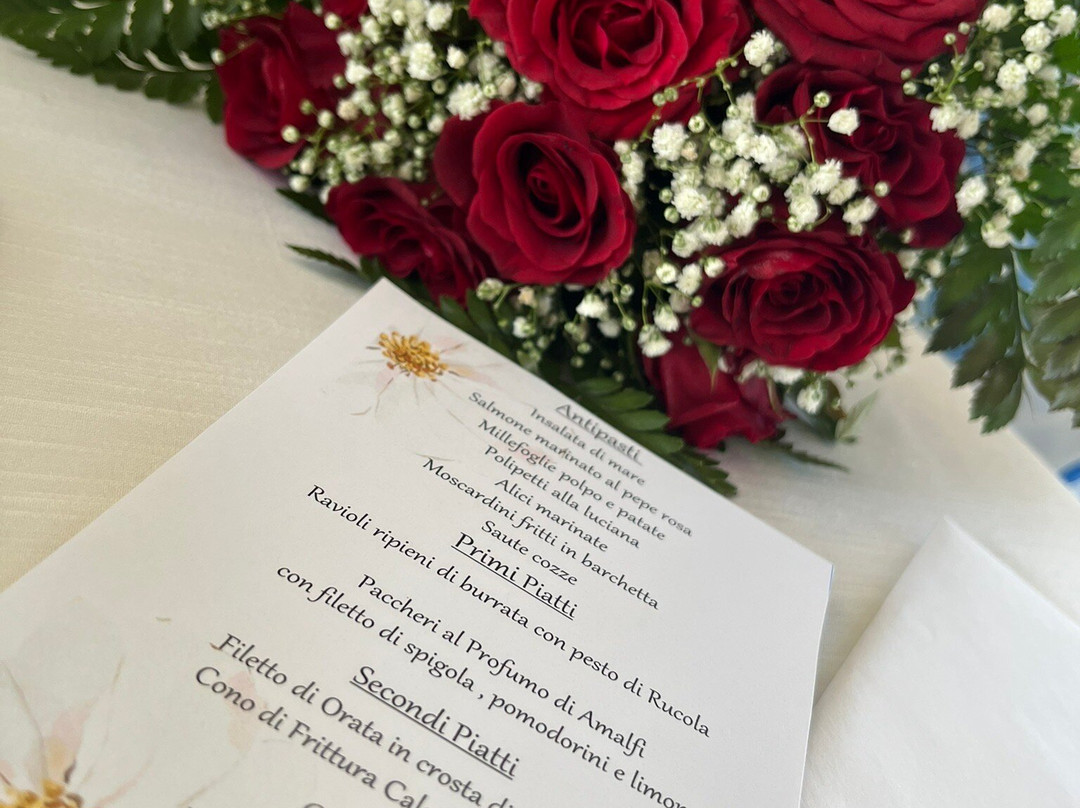 Antipasti
Insalata di mare
Salmone marinato al pepe rosa
Millefoglie polpo e patate
Polipetti alla luciana
Alici marinate
Moscardini fritti in barchetta
Saute cozze
Primi Piatti
Ravioli ripieni di burrata con pesto di Rucola
Paccheri al Profumo di Amalfi
con filetto di spigola , pomodorini e limon
Secondi Piatti
Filetto di Orata in crosta di
Cono di Frittura Cal